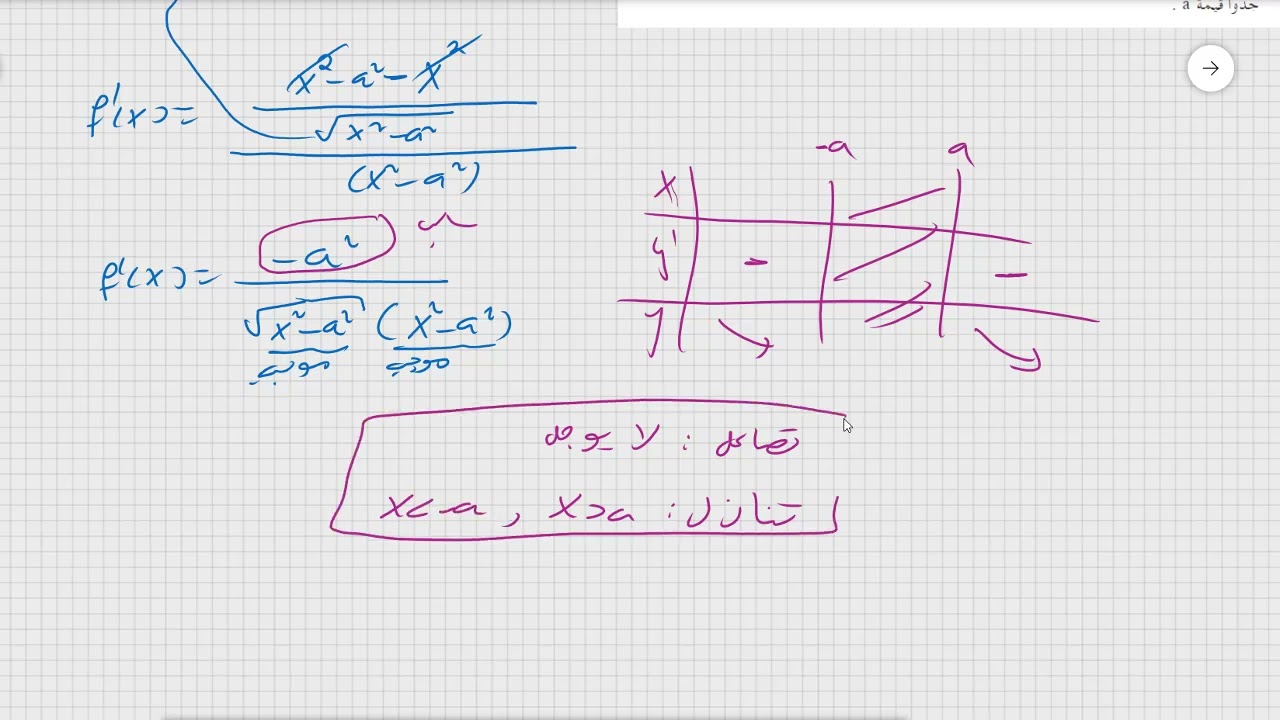 جدوا قيمة a .
f'(x) = (x² - a² - x²) / √(x² - a²) / (x² - a²)
f'(x) = -a² / √(x² - a²) (x² - a²)
سالب
موجب موجب
-a a
x
y' - -
y
تصاعد : لا يوجد
تنازل : x>a , x<-a